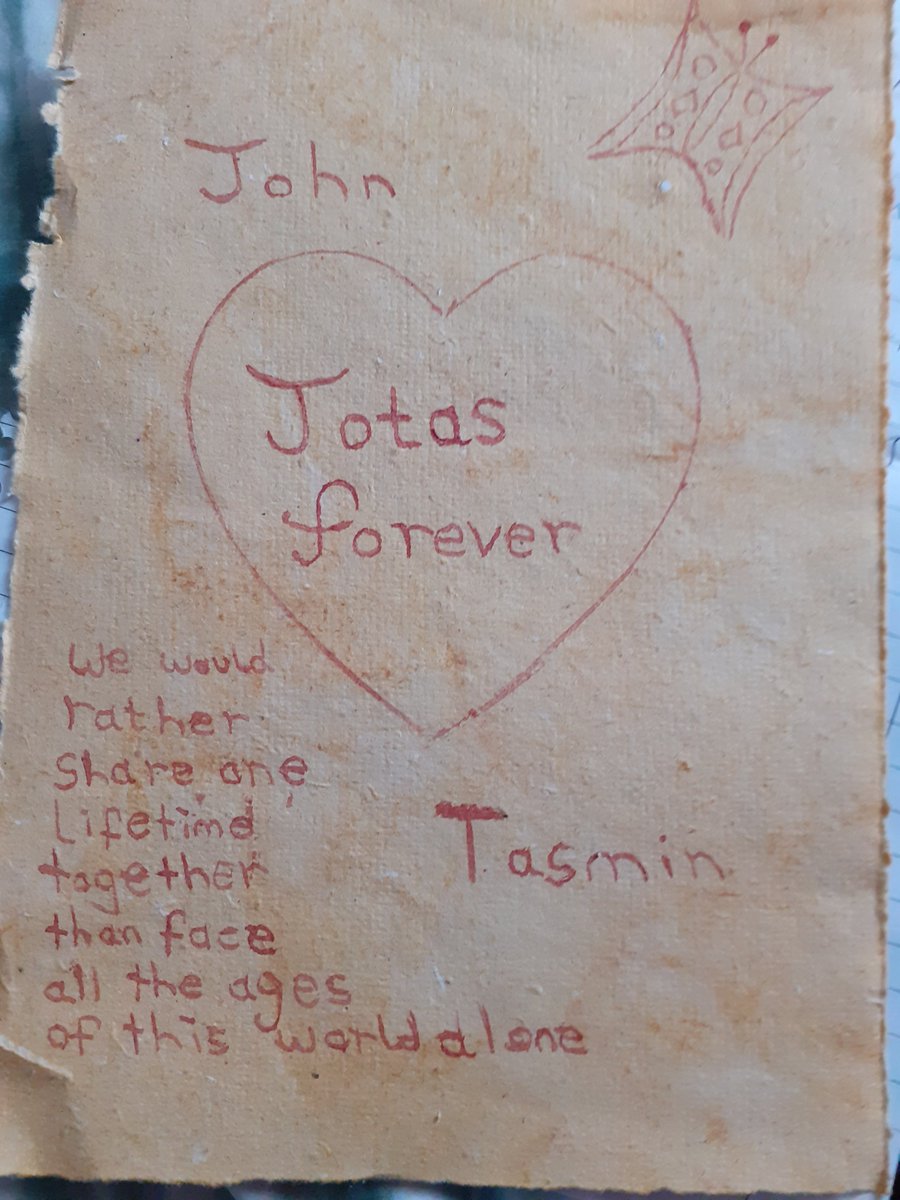 John
Jotas
forever
We would
rather
share one
Lifetime
together
than face
all the ages
of this world alone
Tasmin